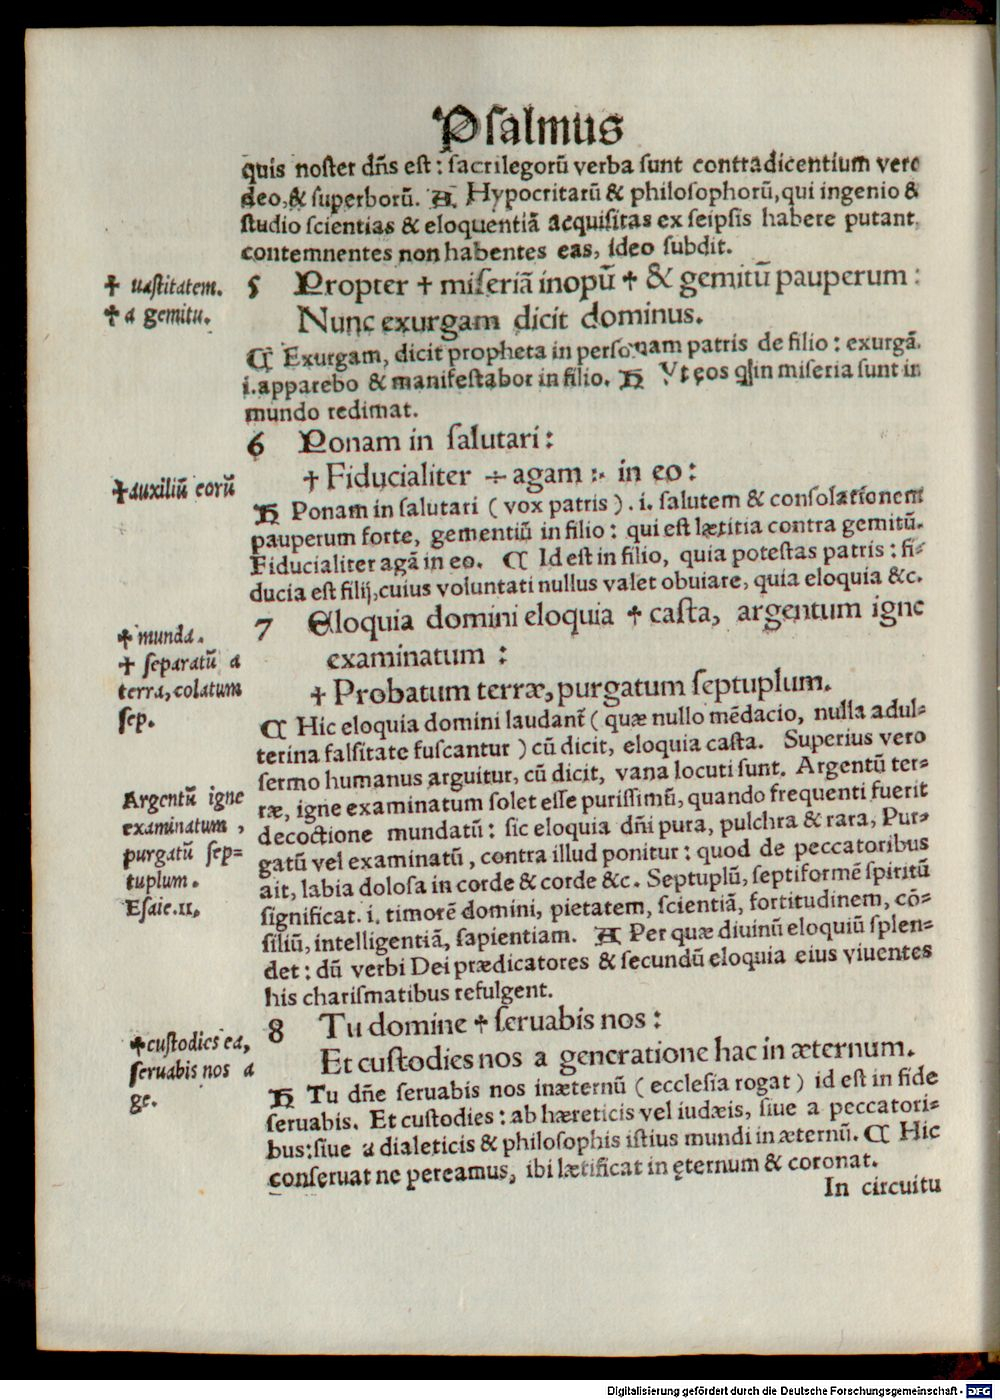 Psalmus
quis noster dn̄s est: sacrilegorū verba sunt contradicentium vere
deo, & superborū. A Hypocritarū & philosophorū, qui ingenio &
studio scientias & eloquentiā acquisitas ex seipsis habere putant,
contemnentes non habentes eas, ideo subdit.
✝ uastitatem.
✝ a gemitu.
5 Propter ✝ miseriā inopū ✝ & gemitū pauperum:
Nunc exurgam dicit dominus.
C Exurgam, dicit propheta in personam patris de filio: exurgā.
i. apparebo & manifestabor in filio. H Vt eos qui in miseria sunt in
mundo redimat.
6 Ponam in salutari:
✝ auxiliū eorū
✝ Fiducialiter ÷ agam :· in eo:
H Ponam in salutari (vox patris). i. salutem & consolationem
pauperum forte, gementiū in filio: qui est lætitia contra gemitū.
Fiducialiter agā in eo. C Id est in filio, quia potestas patris: fi-
ducia est filij, cuius voluntati nullus valet obuiare, quia eloquia &c.
✝ munda.
✝ separatū a
terra, colatum
sep.
7 Eloquia domini eloquia ✝ casta, argentum igne
examinatum:
✝ Probatum terræ, purgatum septuplum.
C Hic eloquia domini laudant̄ (quæ nullo mēdacio, nulla adul-
terina falsitate fuscantur) cū dicit, eloquia casta. Superius vero
sermo humanus arguitur, cū dicit, vana locuti sunt. Argentū ter-
ræ, igne examinatum solet esse purissimū, quando frequenti fuerit
decoctione mundatū: sic eloquia dn̄i pura, pulchra & rara, Pur-
gatū vel examinatū, contra illud ponitur: quod de peccatoribus
ait, labia dolosa in corde & corde &c. Septuplū, septiformē spiritū
significat. i. timorē domini, pietatem, scientiā, fortitudinem, cō-
siliū, intelligentiā, sapientiam. A Per quæ diuinū eloquiū splen-
det: dū verbi Dei prædicatores & secundū eloquia eius viuentes
his charismatibus refulgent.
Argentū igne
examinatum,
purgatū sep-
tuplum.
Esaie.11.
8 Tu domine ✝ seruabis nos:
Et custodies nos a generatione hac in æternum.
✝ custodies ea,
seruabis nos a
ge.
H Tu dn̄e seruabis nos inæternū (ecclesia rogat) id est in fide
seruabis. Et custodies: ab hæreticis vel iudæis, siue a peccatori-
bus: siue a dialeticis & philosophis istius mundi in æternū. C Hic
conseruat ne pereamus, ibi lætificat in ęternum & coronat.
In circuitu
Digitalisierung gefördert durch die Deutsche Forschungsgemeinschaft - DFG